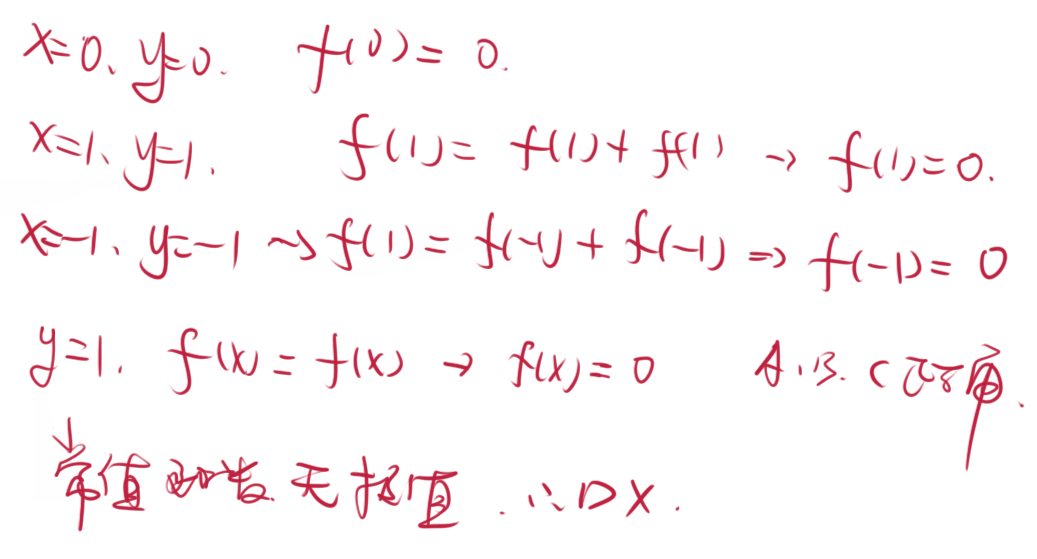 x=0、y=0. f(0)=0.
x=1、y=1. f(1)=f(1)+f(1) → f(1)=0.
x=-1、y=-1 → f(1)=f(-1)+f(-1) ⇒ f(-1)=0
y=1. f(x)=f(x) → f(x)=0 A.B.C
↓
常值函数 无极值. ∴D×.